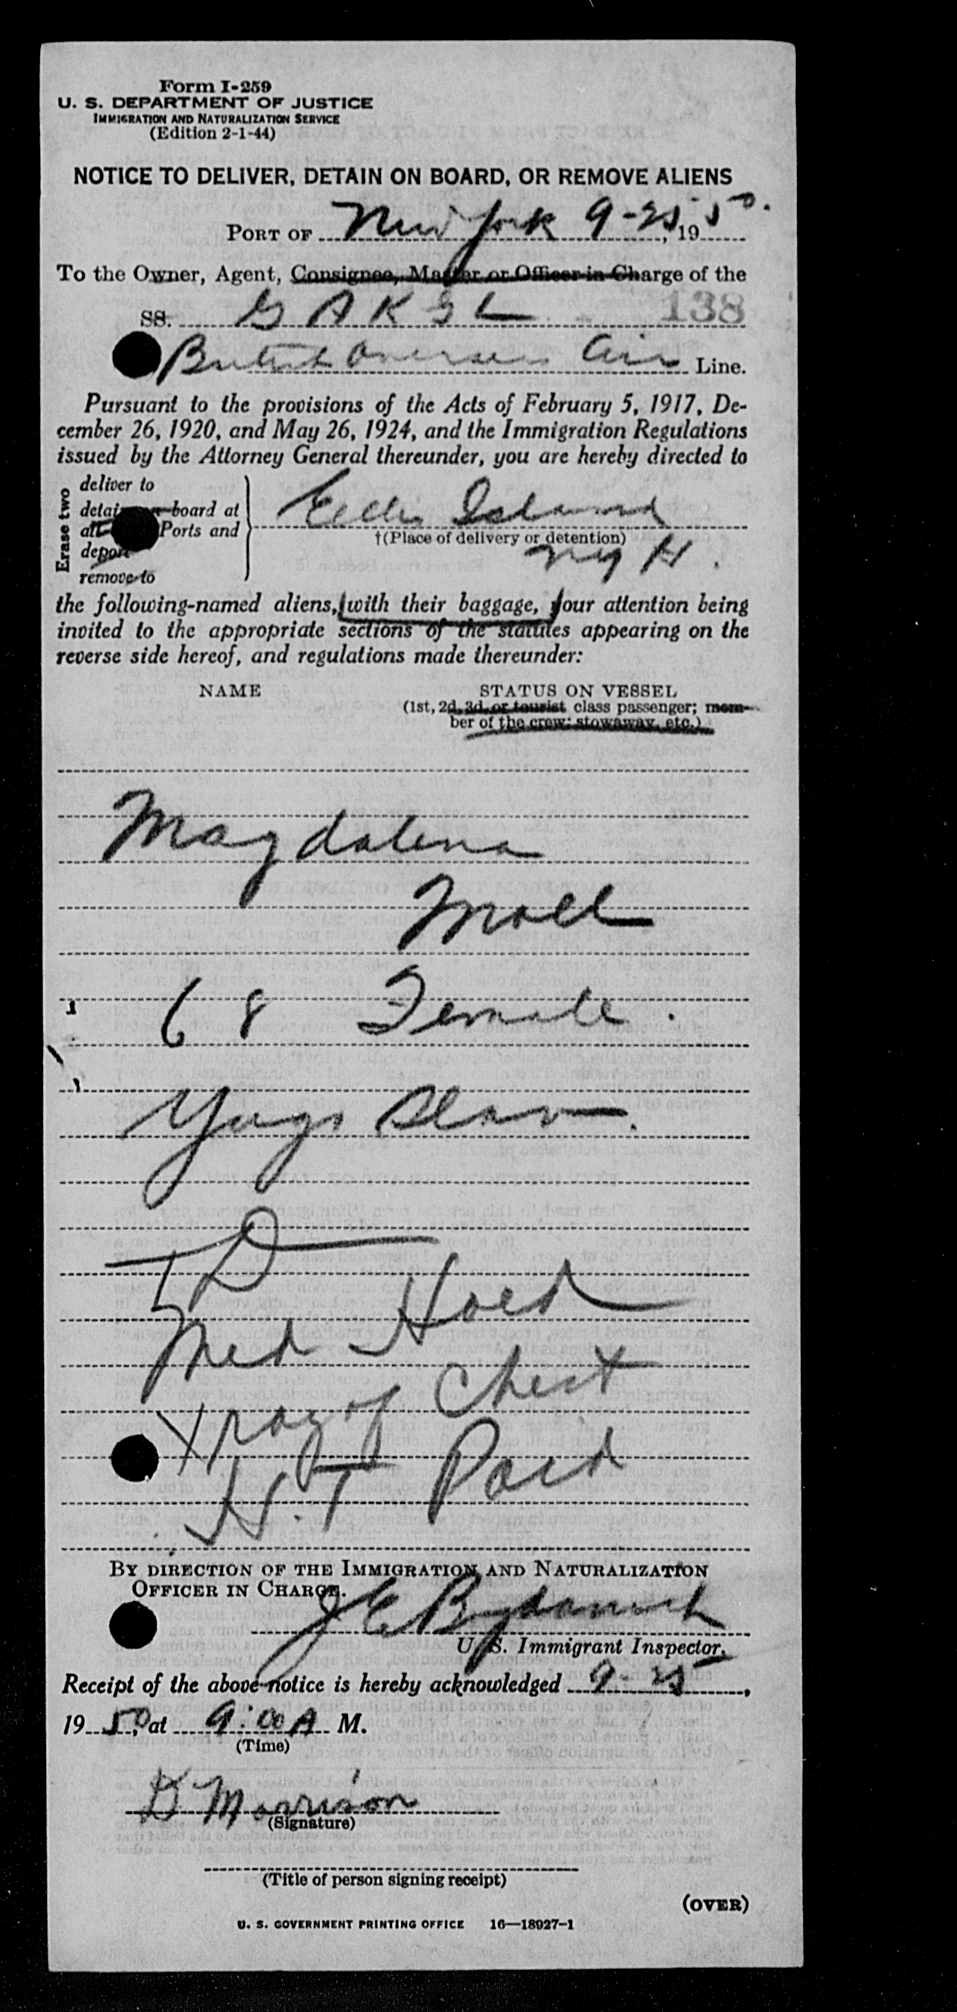 Form I-259
U. S. DEPARTMENT OF JUSTICE
IMMIGRATION AND NATURALIZATION SERVICE
(Edition 2-1-44)
NOTICE TO DELIVER, DETAIN ON BOARD, OR REMOVE ALIENS
PORT OF New York 9-25, 1950.
To the Owner, Agent, Consignee, Master or Officer in Charge of the
SS. G A K G L 138
British Overseas Air Line.
Pursuant to the provisions of the Acts of February 5, 1917, De-
cember 26, 1920, and May 26, 1924, and the Immigration Regulations
issued by the Attorney General thereunder, you are hereby directed to
Erase two
deliver to
detain on board at
all Ports and
deport
remove to
Ellis Island
†(Place of delivery or detention)
NY H.
the following-named aliens, with their baggage, your attention being
invited to the appropriate sections of the statutes appearing on the
reverse side hereof, and regulations made thereunder:
NAME STATUS ON VESSEL
(1st, 2d, 3d, or tourist class passenger; mem-
ber of the crew; stowaway, etc.)
Magdalena
Moll
68 Female.
Yugo Slav.
TD
Med Hold
Xray of Chest
H.T Paid
BY DIRECTION OF THE IMMIGRATION AND NATURALIZATION
OFFICER IN CHARGE.
J C
U. S. Immigrant Inspector.
Receipt of the above notice is hereby acknowledged 9-25,
1950, at 9:00 A M.
(Time)
D Morrison
(Signature)
(Title of person signing receipt)
(OVER)
U. S. GOVERNMENT PRINTING OFFICE 16—18927-1